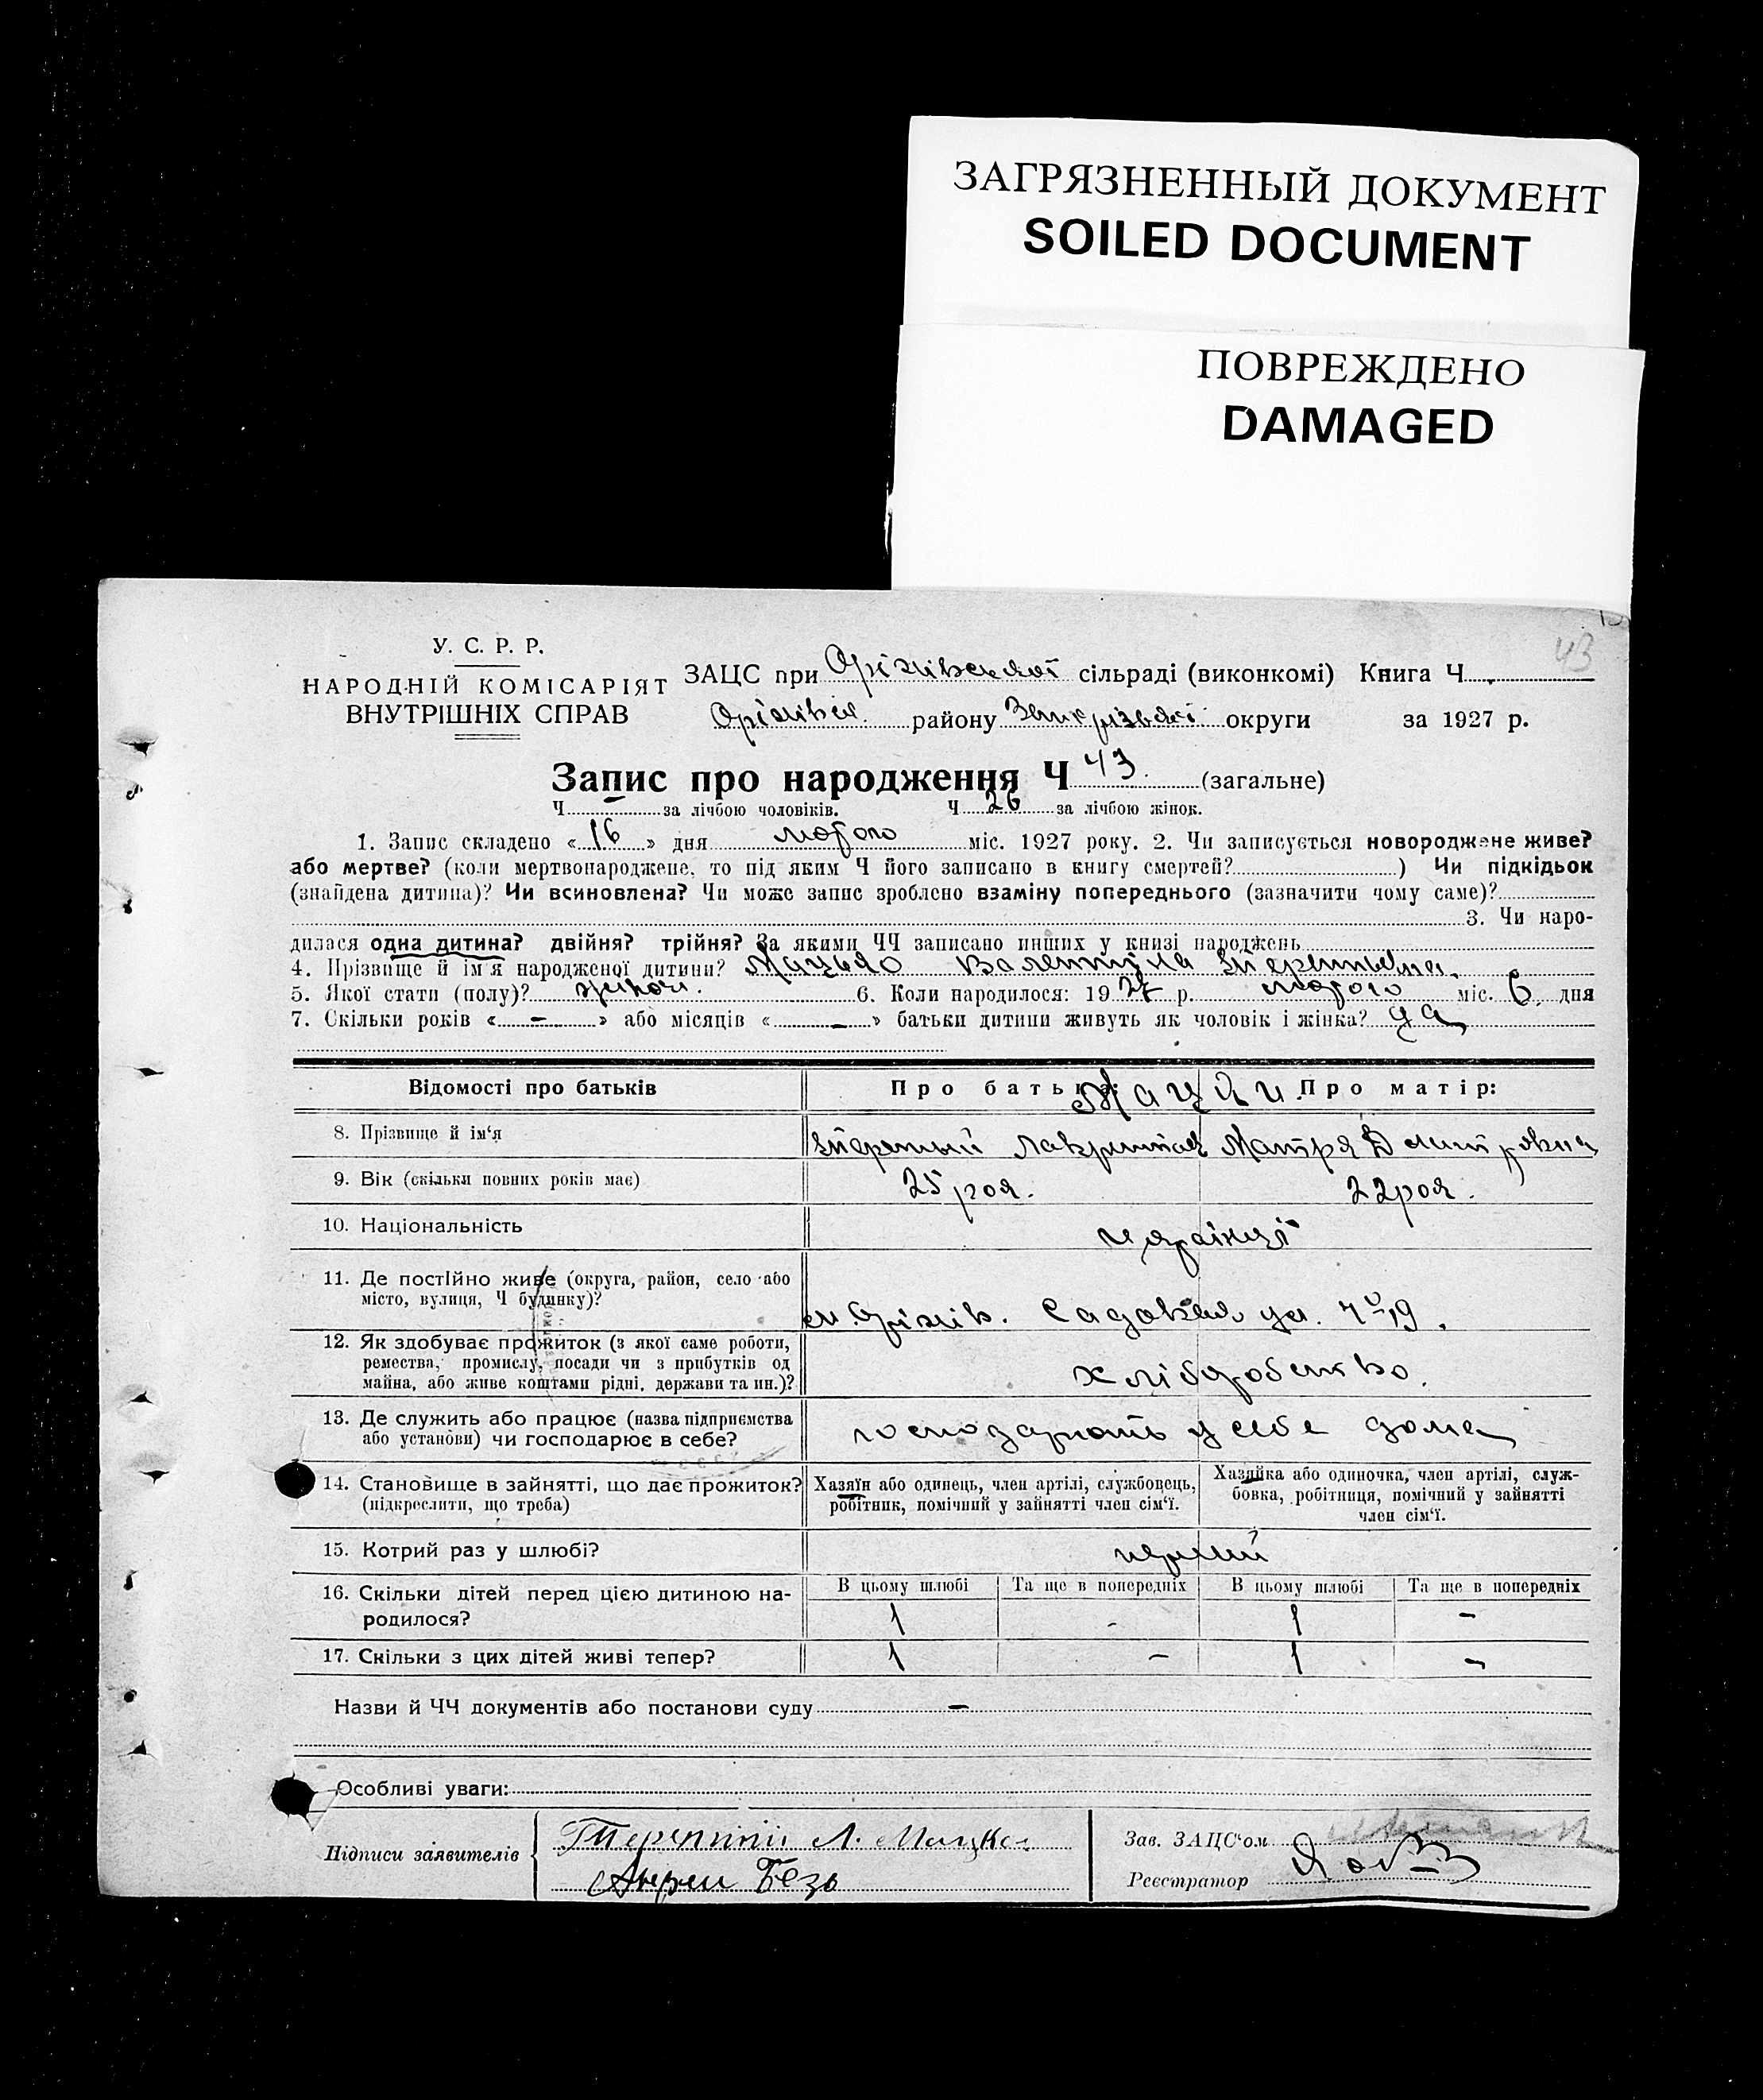 ЗАГРЯЗНЕННЫЙ ДОКУМЕНТ
SOILED DOCUMENT
ПОВРЕЖДЕНО
DAMAGED
43
У. С. Р. Р.
НАРОДНІЙ КОМІСАРІЯТ
ВНУТРІШНІХ СПРАВ
ЗАЦС при Оріхівській сільраді (виконкомі) Книга Ч
Оріхівск. району Запорізької округи за 1927 р.
Запис про народження Ч 43 (загальне)
Ч — за лічбою чоловіків. Ч 26 за лічбою жінок.
1. Запис складено «16» дня лютого міс. 1927 року. 2. Чи записується новороджене живе?
або мертве? (коли мертвонароджене, то під яким Ч його записано в книгу смертей? ) Чи підкідьок
(знайдена дитина)? Чи всиновлена? Чи може запис зроблено взаміну попереднього (зазначити чому саме)?
3. Чи наро-
дилася одна дитина? двійня? трійня? За якими ЧЧ записано инших у книзі народжень
4. Прізвище й ім'я народженої дитини? Мацько Валентина Терентьевна.
5. Якої стати (полу)? жіночі. 6. Коли народилося: 1927 р. лютого міс. 6 дня
7. Скільки років «—» або місяців «—» батьки дитини живуть як чоловік і жінка? да
Відомості про батьків Про батька: Про матір:
8. Прізвище й ім'я Терентий Матря Дмитровна
9. Вік (скільки повних років має) 25 рок. 22 рок.
10. Національність українці
11. Де постійно живе (округа, район, село або
місто, вулиця, Ч будинку)? м. Оріхів. Садовая ул. 19.
12. Як здобуває прожиток (з якої саме роботи,
ремества, промислу, посади чи з прибутків од
майна, або живе коштами рідні, держави та ин.)? хліборобство.
13. Де служить або працює (назва підприємства
або установи) чи господарює в себе? господарють у себе дома
14. Становище в зайнятті, що дає прожиток?
(підкреслити, що треба)
Хазяїн або одинець, член артілі, службовець,
робітник, помічний у зайнятті член сім'ї.
Хазяйка або одиночка, член артілі, служ-
бовка, робітниця, помічний у зайнятті
член сім'ї.
15. Котрий раз у шлюбі? перший
16. Скільки дітей перед цією дитиною на-
родилося?
В цьому шлюбі Та ще в попередніх В цьому шлюбі Та ще в попередніх
1 - 1 -
17. Скільки з цих дітей живі тепер? 1 - 1 -
Назви й ЧЧ документів або постанови суду —
Особливі уваги:
Підписи заявителів
Терентій Л. Мацко
Андрей Безь
Зав. ЗАЦС'ом
Реєстратор